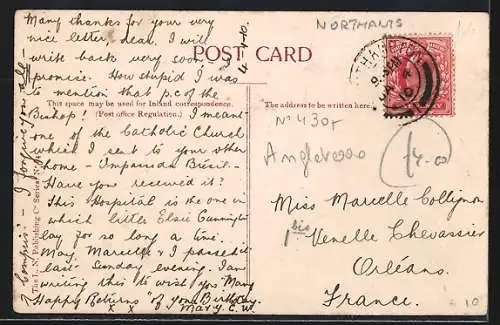 Many thanks for your very
nice letter, dear. I will
write back very soon, I
promise. How stupid I was
to mention that p.c. of the
Bishop! I meant
one of the Catholic Church
which I sent to your other
home - Impasse Brésil -
Have you received it?
This Hospital is the one in
which little Elsie
lay for so long a time.
May, Marcelle & I passed it
last Sunday evening. I am
writing this to wish you "Many
Happy Returns" of your Birthday.
x x Mary E. W.
I forgive you all
4.4.10.
POST CARD
This space may be used for Inland correspondence.
(Post office Regulation.)
The address to be written here.
The L. N. Publishing Co Series No
NORTHANTS
No 430F
Angleterre
Miss Marcelle Collignon
1 bis Venelle Chevassier
Orléans.
France.